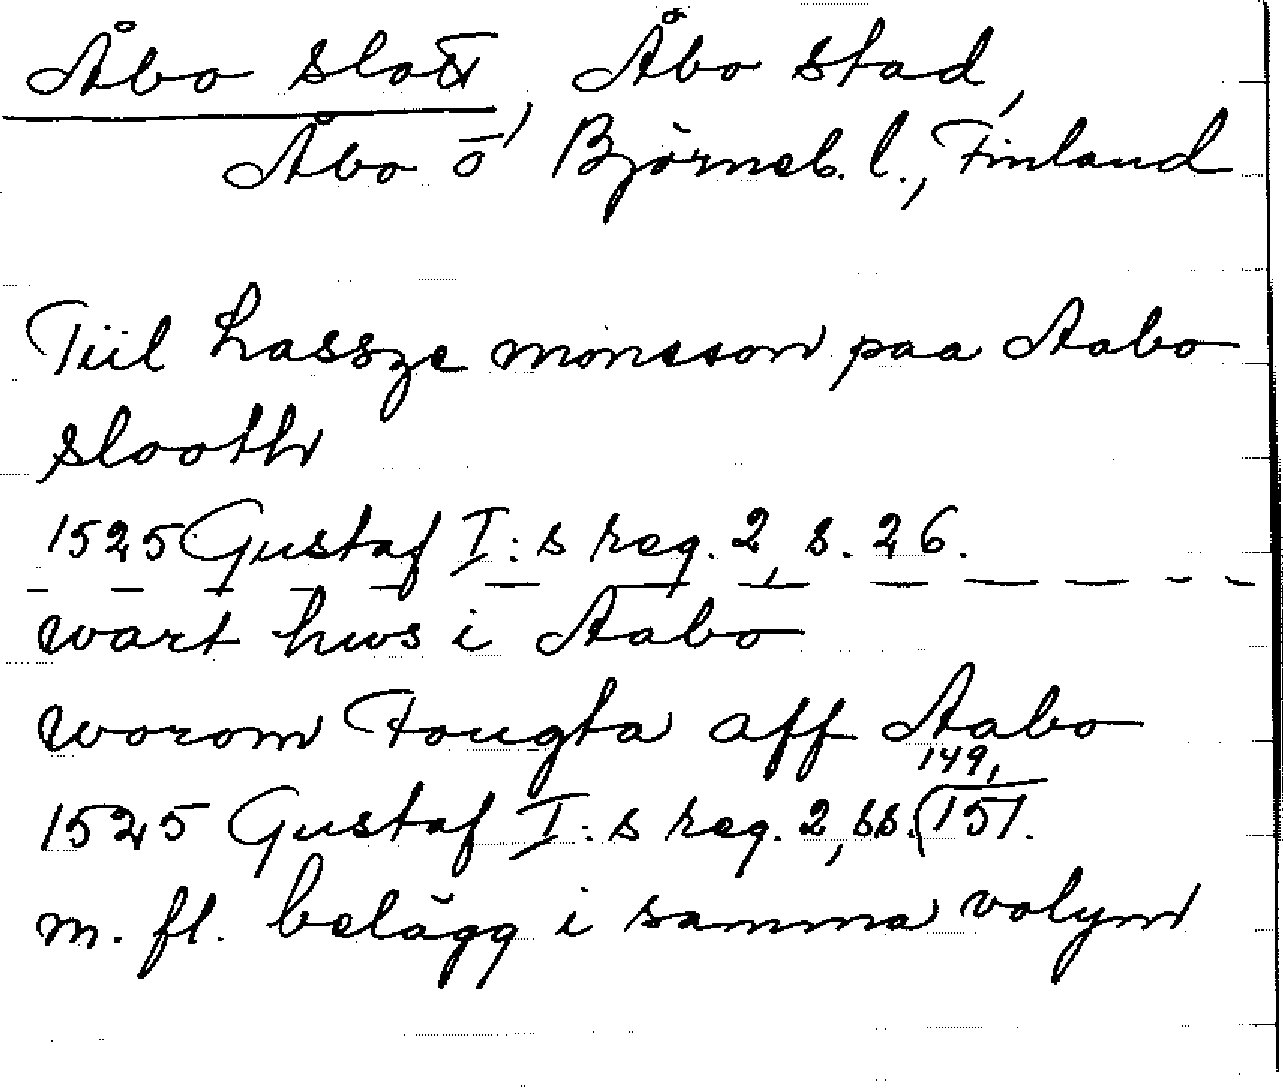 Åbo slott, Åbo stad,
Åbo o Björneb. l., Finland
Tiil hassze monsson paa Aabo
slooth
1525 Gustaf I:s reg. 2, s. 26.
wart hws i Aabo
worom Fougta aff Aabo
149,
1525 Gustaf I:s reg. 2, ss. 151.
m. fl. belägg i samma volym